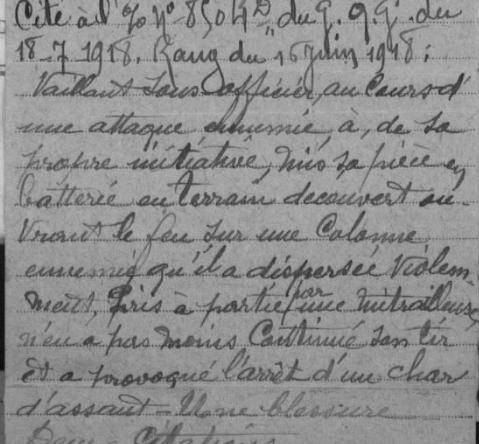 Cité à l'O nº 8504 D du G. Q. G. du
18-7-1918. Rang du 16 juin 1918:
Vaillant sous-officier, au cours d'
une attaque ennemie, a, de sa
propre initiative, mis sa pièce en
batterie en terrain decouvert ou-
vrant le feu sur une Colonne
ennemie qu'il a dispersée Violem-
ment, Pris à partie par une mitrailleuse,
n'en a pas moins continué son tir
et a provoqué l'arrêt d'un char
d'assaut - Une blessure
Deux - Citations